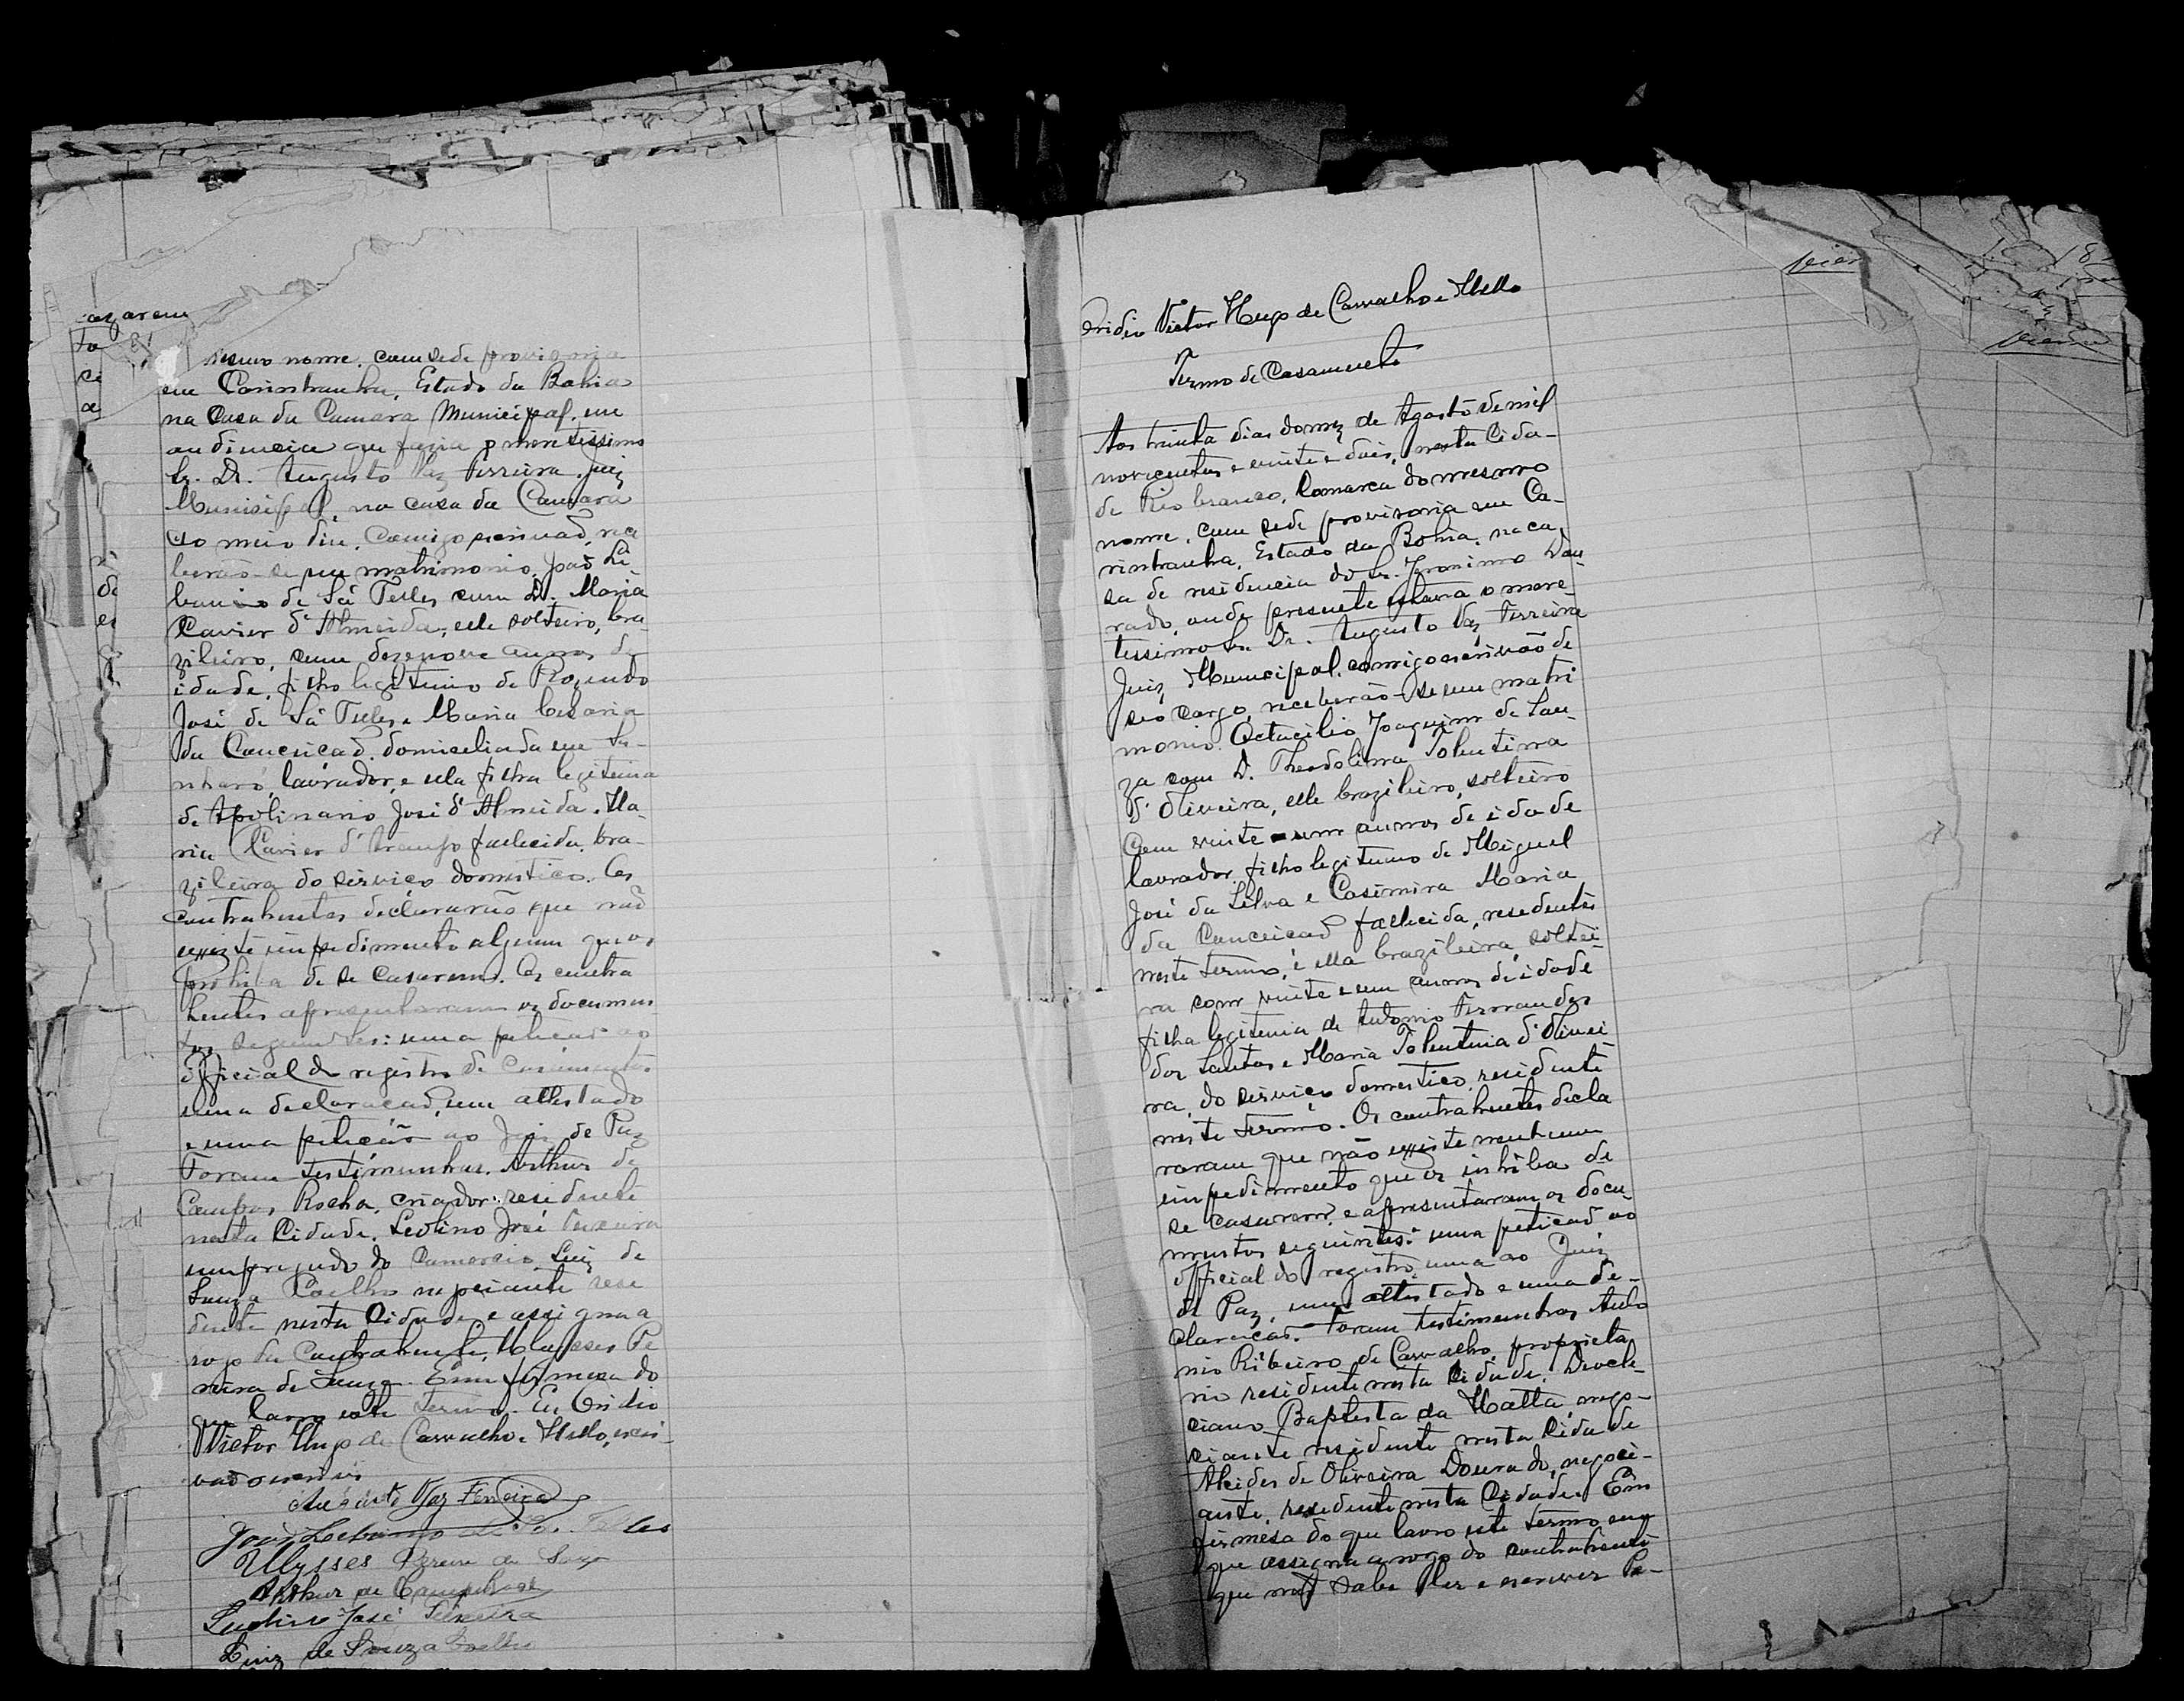 mesmo nome, com sede provisoria
em Carinhanha, Estado da Bahia
na Casa da Camara Municipal, em
audiencia que fazia o meretissimo
Sr. Dr. Augusto Vaz Ferreira, juiz
Municipal, na casa da Camara
ao meio dia, comigo escrivaõ, rece
berão-se em matrimonio, Joaõ Li-
banio de Sá Telles com D. Maria
Cavier d'Almeida, elle solteiro, bra-
zileiro, com dezenove annos de
idade, filho legitimo de Rozendo
José de Sá Telles e Maria Cesaria
da Conceicaõ, domiciliado em
lavrador, e ella filha legitima
de Apolinario José d'Almeida, Ma-
ria Cavier d'Araujo fallecida, bra-
zileira do serviço domestico. Os
contrahentes declararão que naõ
existe impedimento algum que os
prohiba de se casarem. Os contra
hentes apresentaram os documen
tos seguintes: uma peticaõ ao
official do registro de Casamentos
uma declaracaõ, um attestado
e uma petição ao Juiz de Paz
Foram testimunhas, Arthur de
Campos Rocha, criador, residente
nesta Cidade, Ludino José Teixeira
empregado do Comercio, Luiz de
Souza Coelho negociante resi
dente nesta Cidade, e assigna a
rogo da Contrahente, Ulysses Pe
reira de Souza. Em firmeza do
que lavro este termo. Eu Ovidio
Victor Hugo de Carvalho e Mello, escri-
vaõ o escrevi
Augusto Vaz Ferreira
João Lebanio de Sá Telles
Ulysses Pereira de Souza
Arthur de Campos Rocha
Ludino José Teixeira
Luiz de Souza Coelho
Ovidio Victor Hugo de Carvalho e Mello
Termo de Casamento
Aos trinta dias do mez de Agosto de mil
novecentos e vinte e dois, nesta Cida-
de Rio branco, Comarca do mesmo
nome, com sede provisoria em Ca-
rinhanha, Estado da Bahia, na ca
sa de residencia do Sr. Jeronimo Dou
rado, onde presente estava o mere-
tissimo Sr. Dr. Augusto Vaz Ferreira
Juiz Municipal, comigo escrivão de
seo cargo, receberão-se em matri
monio, Octacilio Joaquim de Sou-
za com D. Theodolina Tolentina
d'Oliveira, elle brazileiro, solteiro
Com vinte e um annos de idade
lavrador, filho legitimo de Miguel
José da Silva e Casimira Maria
da Conceicaõ fallecida, residentes
neste termo, e ella brazileira soltei-
ra com vinte e um annos de idade
filha legitima de Antonio Fernandes
dos Santos e Maria Tolentina d'Olivei
ra, do serviço domestico, residente
neste termo. Os contrahentes decla
raram que não existe nenhum
impedimento que os inhiba de
se casarem, e apresentaram os docu-
mentos seguintes: uma peticaõ ao
official do registro, uma ao Juiz
de Paz, um attestado e uma de-
claracaõ. Foram testimunhas Anto
nio Ribeiro de Carvalho, proprieta
rio residente nesta Cidade, Deocle-
ciano Baptista da Matta, nego-
ciante residente nesta Cidade
Alcides de Oliveira Dourado, negoci-
ante, residente nesta Cidade. Em
firmesa do que lavro este termo em
que assigna a rogo do contrahente
que naõ sabe ler e escrever Pe-